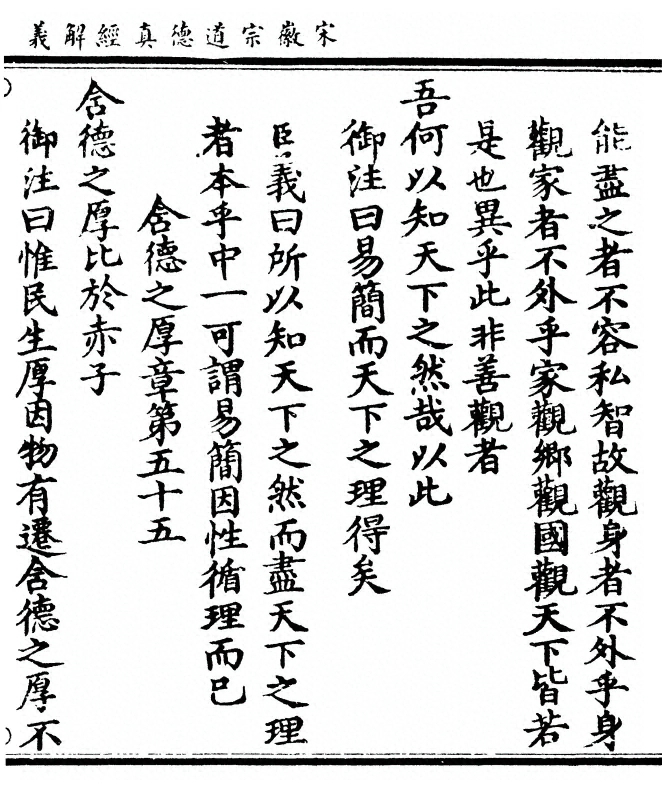 宋徽宗道德真經解義
能盡之者不容私智故觀身者不外乎身
觀家者不外乎家觀鄉觀國觀天下皆若
是也異乎此非善觀者
吾何以知天下之然哉以此
御注曰易簡而天下之理得矣
臣義曰所以知天下之然而盡天下之理
者本乎中一可謂易簡因性循理而已
含德之厚章第五十五
含德之厚比於赤子
御注曰惟民生厚因物有遷含德之厚不